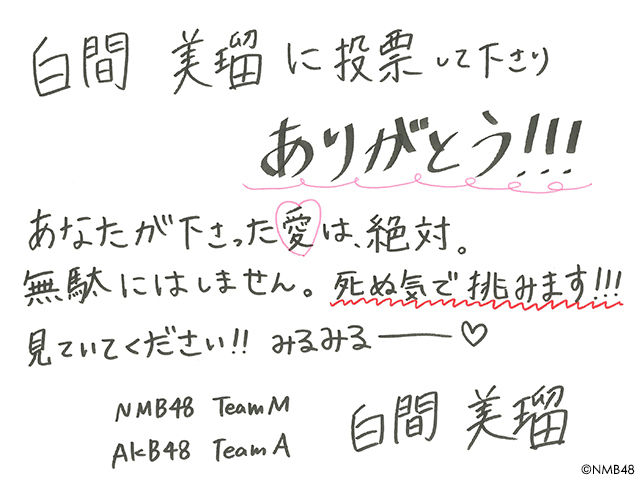 白間 美瑠に投票して下さり
ありがとう!!!
あなたが下さった愛は、絶対。
無駄にはしません。死ぬ気で挑みます!!!
見ていてください!! みるみる——♡
NMB48 Team M
AKB48 Team A
白間 美瑠
©NMB48